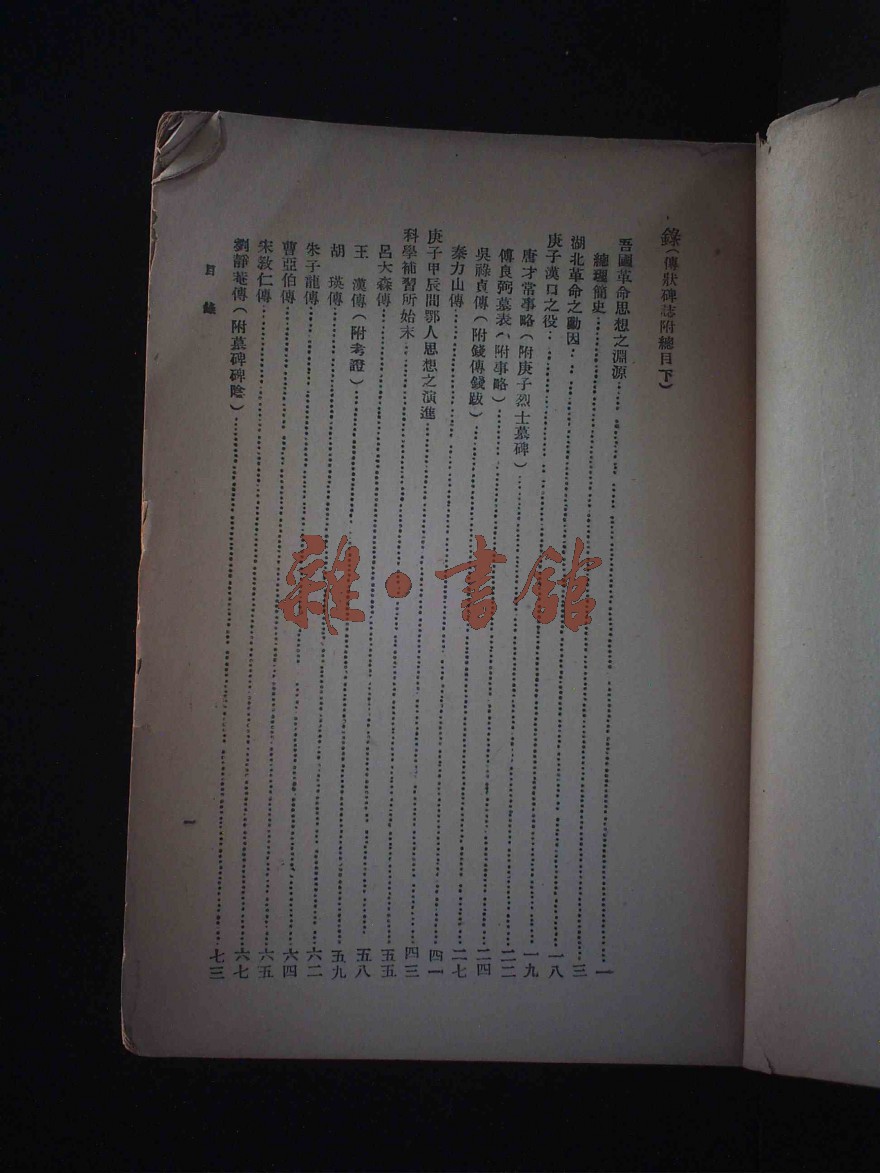 錄(傳狀碑誌附總目下)
吾國革命思想之淵源……一
總理簡史……三
湖北革命之動因……一八
庚子漢口之役……一九
唐才常事略(附庚子烈士墓碑)……二二
傅良弼墓表(附事略)……二四
吳祿貞傳(附錢傳錢跋)……二七
秦力山傳……四一
庚子甲辰間鄂人思想之演進……四三
科學補習所始末……五五
呂大森傳……五八
王 漢傳(附考證)……五九
胡 瑛傳……六二
朱子龍傳……六四
曹亞伯傳……六五
宋敎仁傳……六七
劉靜菴傳(附墓碑碑陰)……七三
目錄
一
雜·書館